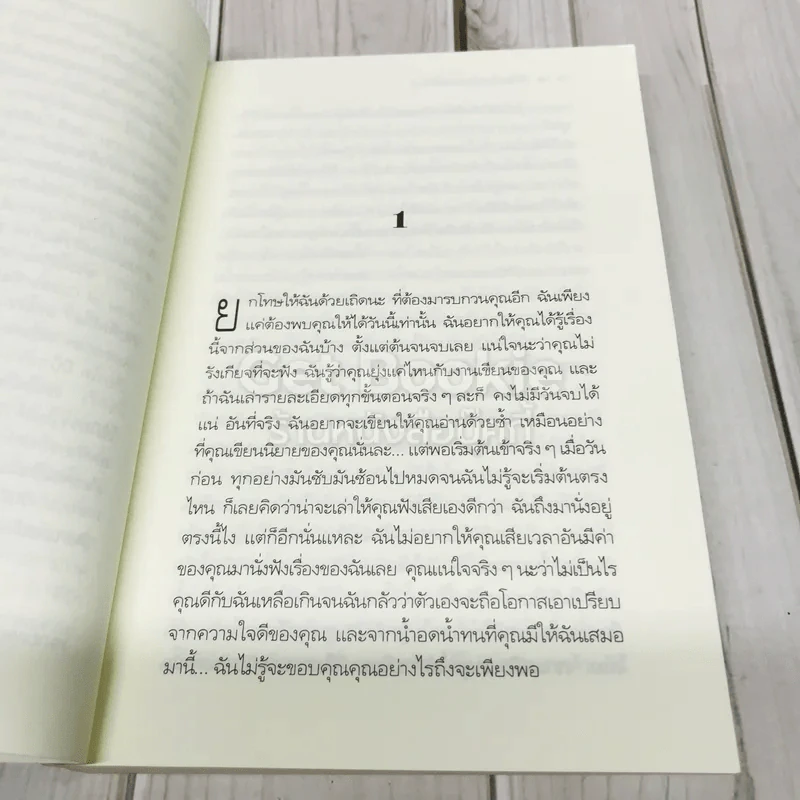 1
ยกโทษให้ฉันด้วยเถิดนะ ที่ต้องมารบกวนคุณอีก ฉันเพียง
แค่ต้องพบคุณให้ได้วันนี้เท่านั้น ฉันอยากให้คุณได้รู้เรื่อง
นี้จากส่วนของฉันบ้าง ตั้งแต่ต้นจนจบเลย แน่ใจนะว่าคุณไม่
รังเกียจที่จะฟัง ฉันรู้ว่าคุณยุ่งแค่ไหนกับงานเขียนของคุณ และ
ถ้าฉันเล่ารายละเอียดทุกขั้นตอนจริงๆ ละก็ คงไม่มีวันจบได้
แน่ อันที่จริง ฉันอยากจะเขียนให้คุณอ่านด้วยซ้ำ เหมือนอย่าง
ที่คุณเขียนนิยายของคุณนั่นละ... แต่พอเริ่มต้นเข้าจริงๆ เมื่อวัน
ก่อน ทุกอย่างมันซับมันซ้อนไปหมดจนฉันไม่รู้จะเริ่มต้นตรง
ไหน ก็เลยคิดว่าน่าจะเล่าให้คุณฟังเสียเองดีกว่า ฉันถึงมานั่งอยู่
ตรงนี้ไง แต่ก็อีกนั่นแหละ ฉันไม่อยากให้คุณเสียเวลาอันมีค่า
ของคุณมานั่งฟังเรื่องของฉันเลย คุณแน่ใจจริงๆ นะว่าไม่เป็นไร
คุณดีกับฉันเหลือเกินจนฉันกลัวว่าตัวเองจะถือโอกาสเอาเปรียบ
จากความใจดีของคุณ และจากน้ำอดน้ำทนที่คุณมีให้ฉันเสมอ
มานี้... ฉันไม่รู้จะขอบคุณคุณอย่างไรถึงจะเพียงพอ